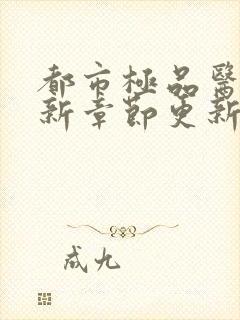 都市極品醫
新章節更新
成九